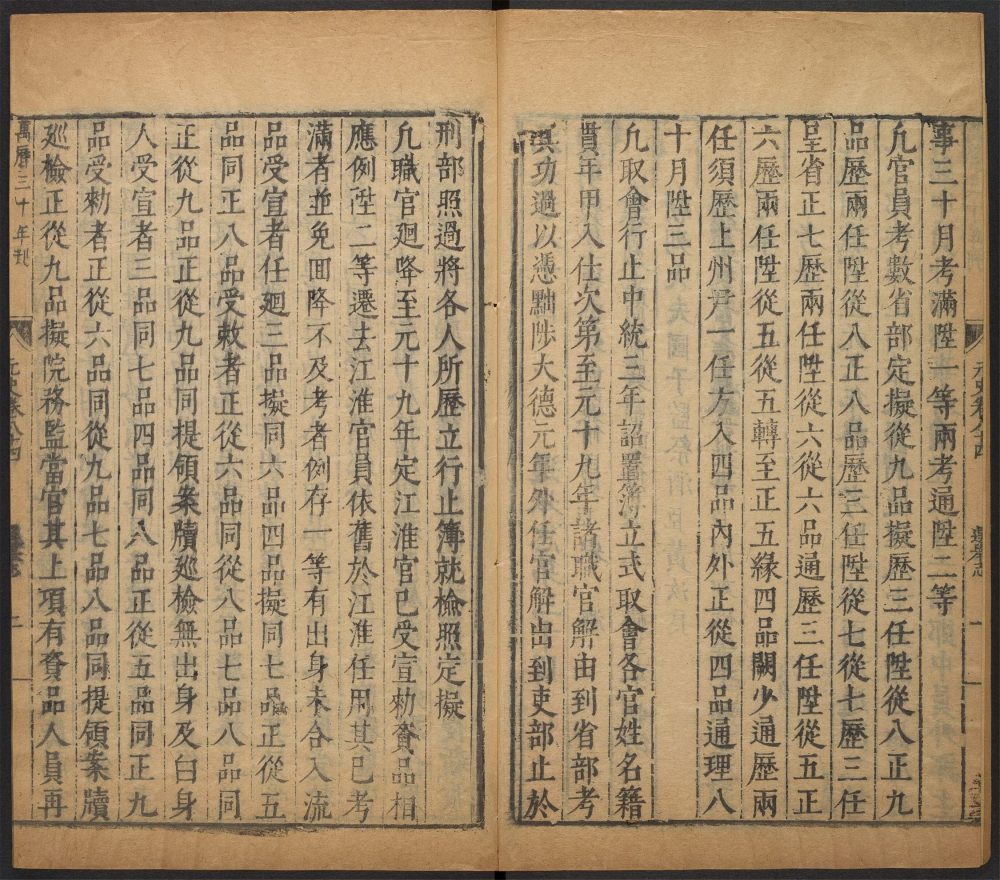 事三十月考滿陞一等兩考通陞二等
凢官員考數省部定擬從九品擬歷三任陞從八正九
品歷兩任陞從八正八品歷三任陞從七從七歷三任
呈省正七歷兩任陞從六從六品通歷三任陞從五正
六歷兩任陞從五從五轉至正五緣四品闕少通歷兩
任須歷上州尹一任方入四品內外正從四品通理八
十月陞三品
凢取會行止中統三年詔置簿立式取會各官姓名籍
貫年甲入仕次第至元十九年諸職官解由到省部考
其功過以憑黜陟大德元年外任官解由到吏部止於
刑部照過將各人所歷立行止簿就檢照定擬
凢職官廻降至元十九年定江淮官已受宣勑資品相
應例陞二等遷去江淮官員依舊於江淮任用其已考
滿者並免囬降不及考者例存一等有出身未合入流
品受宣者任廻三品擬同六品四品擬同七品正從五
品同正八品受敕者正從六品同從八品七品八品同
正從九品正從九品同提領案牘廵檢無出身及白身
人受宣者三品同七品四品同八品正從五品同正九
品受勑者正從六品同從九品七品八品同提領案牘
廵檢正從九品擬院務監當官其上項有資品人員再
萬曆三十年刊
元史卷八十四
選舉志
一